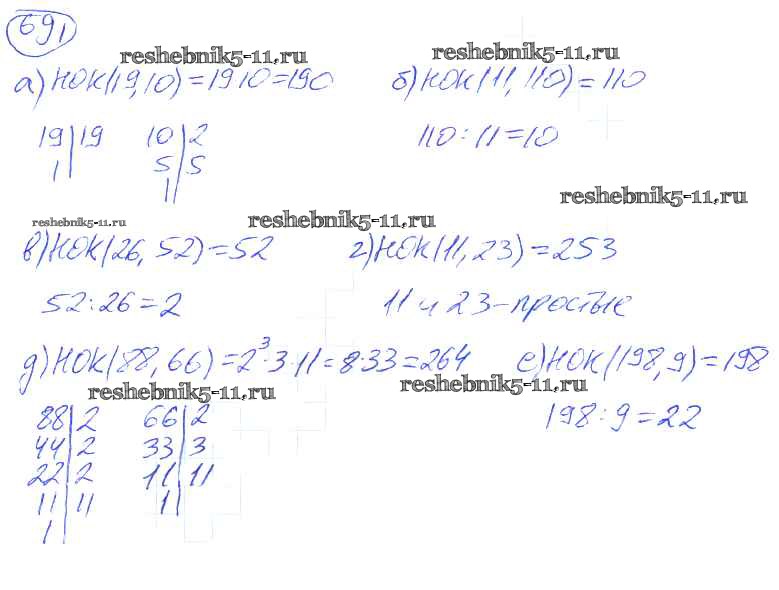 691
reshebnik5-11.ru
reshebnik5-11.ru
а) НОК(19,10)=19·10=190
б) НОК(11, 110)=110
19|19 10|2
1| 5|5
1|
110:11=10
reshebnik5-11.ru
reshebnik5-11.ru
reshebnik5-11.ru
в) НОК(26, 52)=52
г) НОК(11, 23)=253
52:26=2
11 и 23-простые
д) НОК(88, 66)=2³·3·11=8·33=264
е) НОК(198,9)=198
reshebnik5-11.ru
reshebnik5-11.ru
88|2 66|2
44|2 33|3
22|2 11|11
11|11 1|
1|
198:9=22